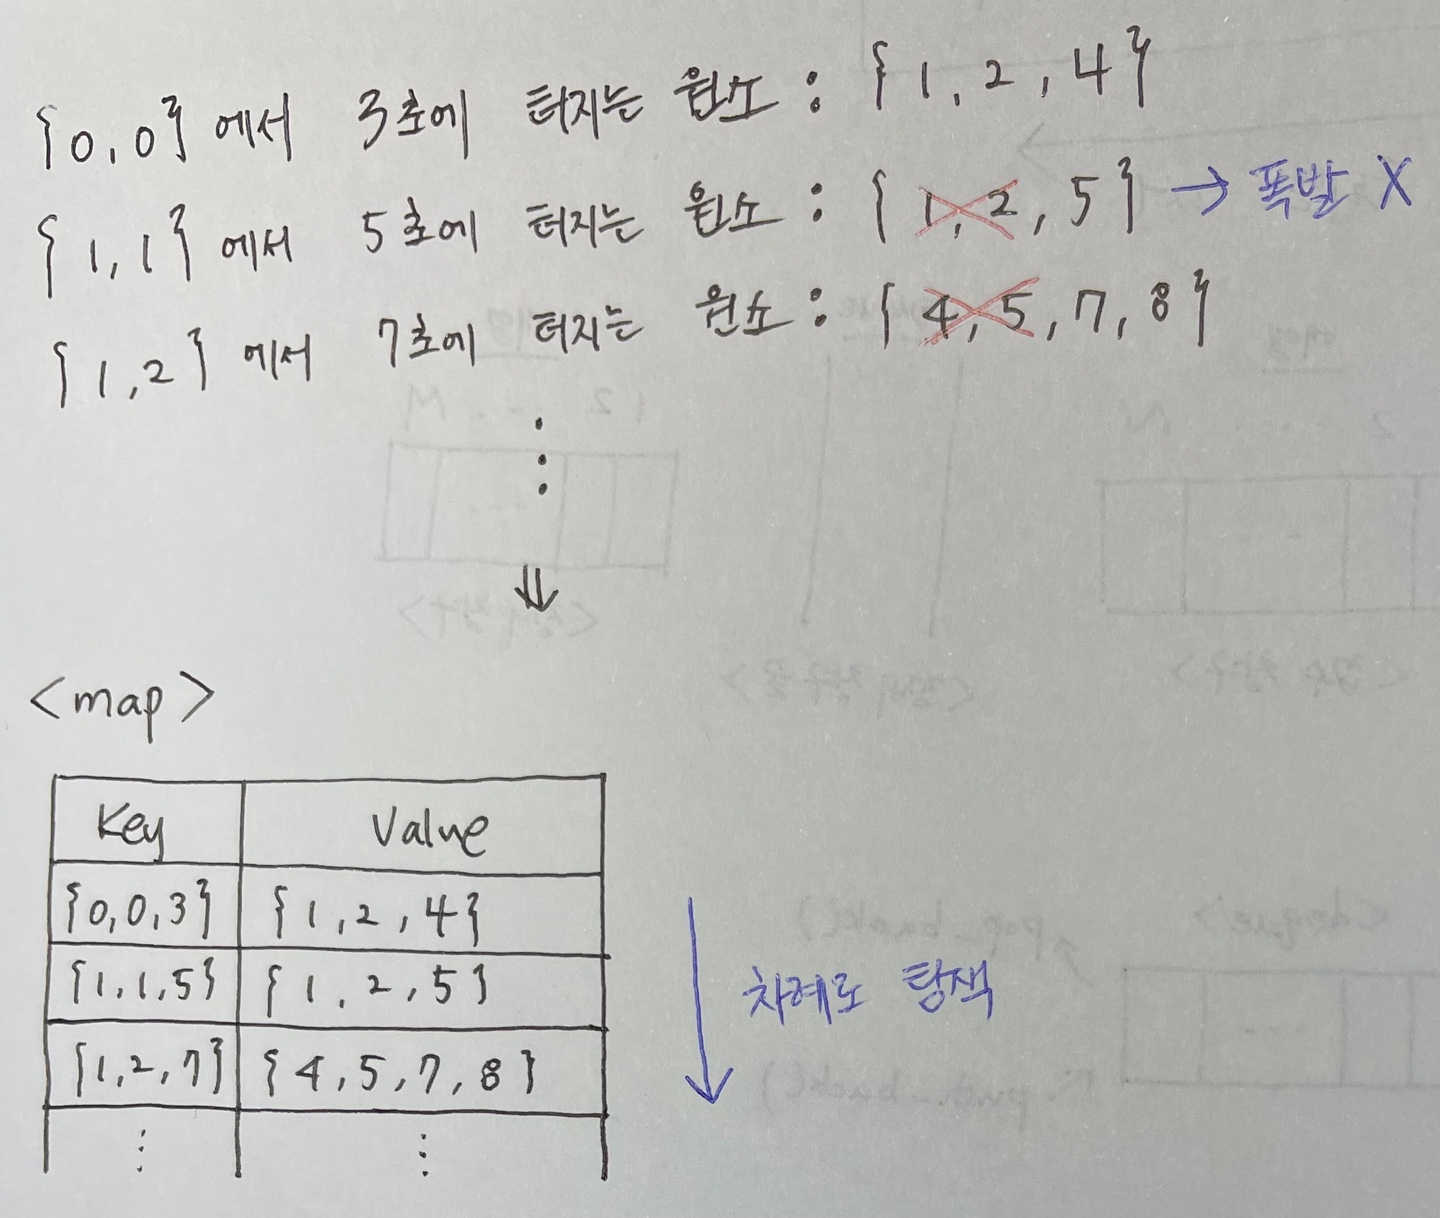 {0,0}에서 3초에 터지는 원소 : {1, 2, 4}
{1,1}에서 5초에 터지는 원소 : {1, 2, 5} → 폭발 X
{1,2}에서 7초에 터지는 원소 : {4, 5, 7, 8}
⋮
⇓
<map>
Key Value
{0,0,3} {1, 2, 4}
{1,1,5} {1, 2, 5}
{1,2,7} {4, 5, 7, 8}
⋮ ⋮
차례로 탐색